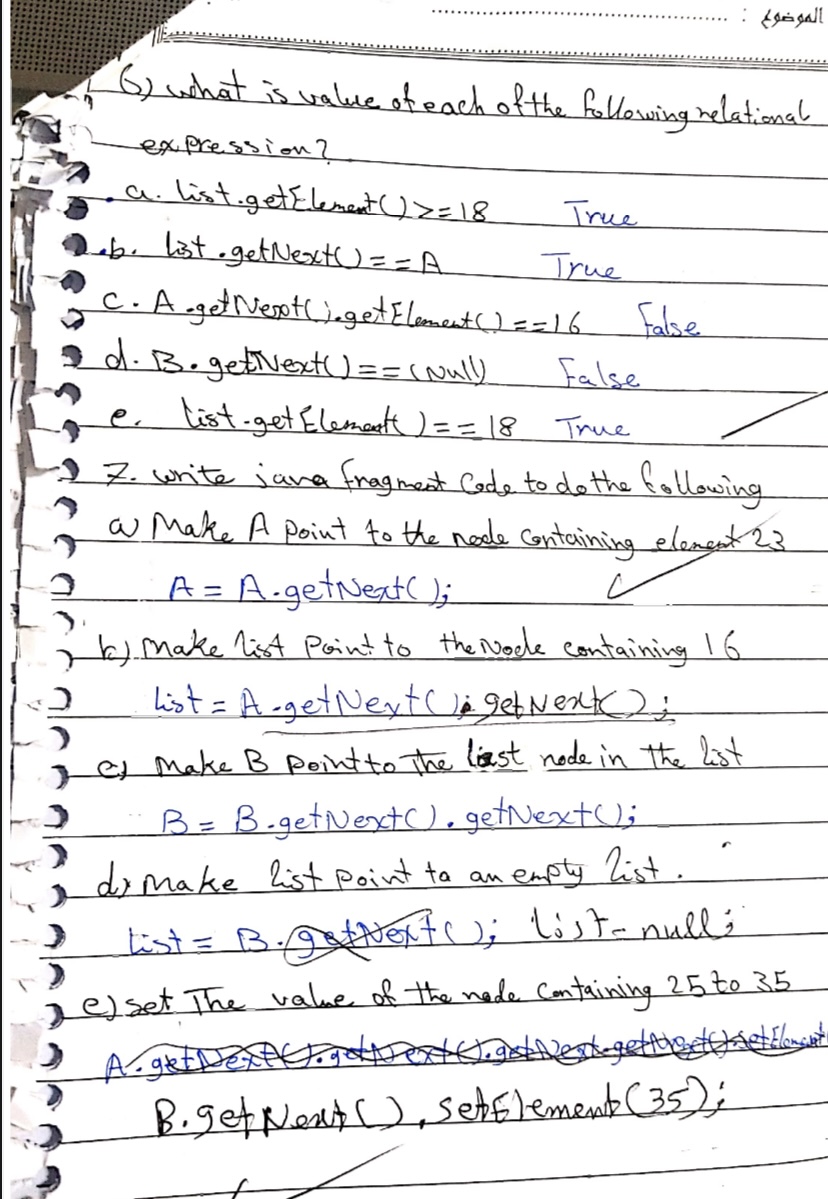 الموضوع :
6) what is value of each of the following relational
expression?
a. list.getElement() >= 18 True
b. list.getNext() == A True
c. A.getNext().getElement() == 16 False
d. B.getNext() == (Null) False
e. list.getElement() == 18 True
7. write java fragment Code to do the following
a) Make A point to the node containing element 23
A = A.getNext();
b) make list Point to the Node containing 16
list = A.getNext().getNext();
c) Make B point to The last node in the list
B = B.getNext().getNext();
d) Make list point to an empty list.
list = B.getNext(); list = null;
e) set The value of the node Containing 25 to 35
A.getNext().getNext().getNext.getNext().setElement
B.getNext().setElement(35);